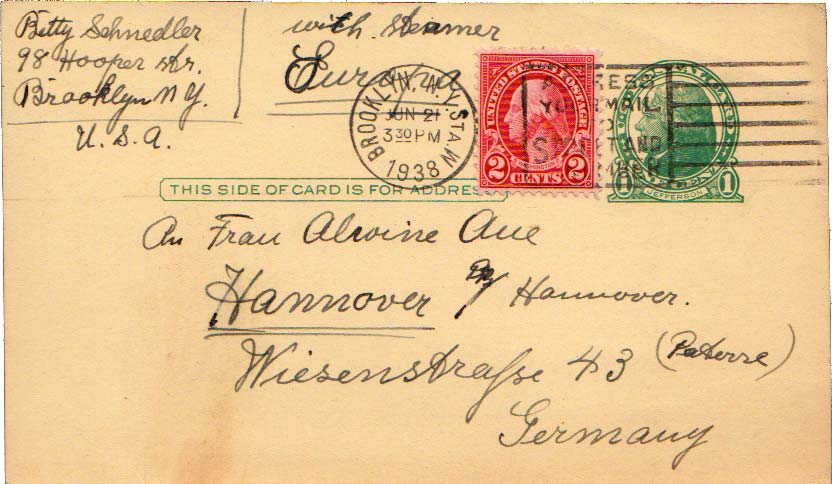 Betty Schnedler
98 Hooper Str.
Brooklyn N.Y.
U.S.A.
with steamer
Europa
BROOKLYN, N.Y. STA.W
JUN 21
3 30 PM
1938
UNITED STATES POSTAGE
WASHINGTON
2 CENTS 2
ADDRESS
YOUR MAIL
TO
STREET AND
NUMBER
JEFFERSON
1
THIS SIDE OF CARD IS FOR ADDRESS
An Frau Alwine Aue
Hannover Hannover.
Wiesenstraße 43 (Paterre)
Germany